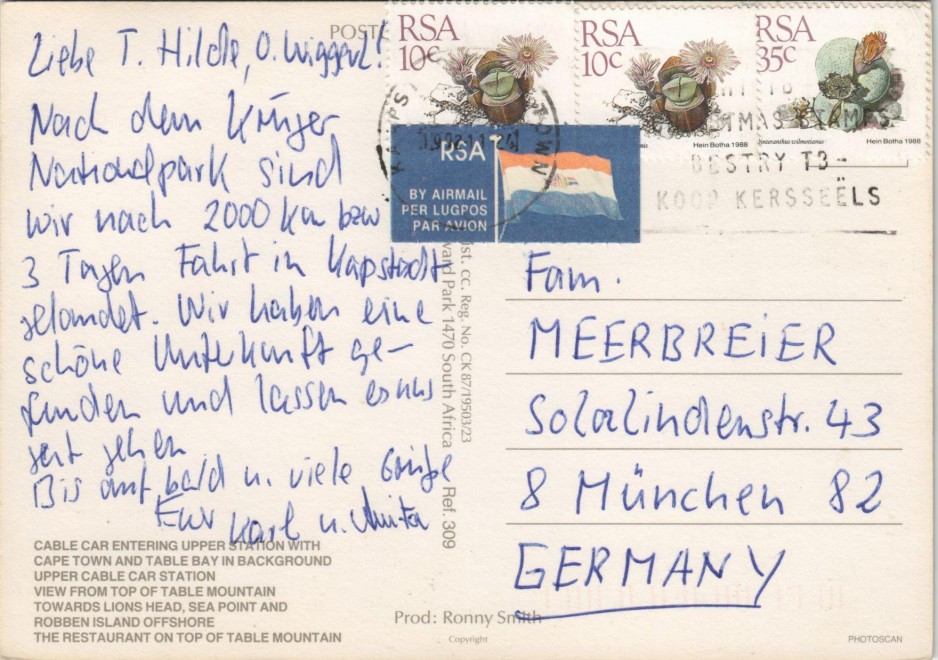 Liebe T. Hilde, O. Wiggerl!
Nach dem Krüger
Nationalpark sind
wir nach 2000 km bzw
3 Tagen Fahrt in Kapstadt
gelandet. Wir haben eine
schöne Unterkunft ge-
funden und lassen es uns
gut gehen
Bis auf bald u. viele Grüße
Eur Karl u. Anita
CABLE CAR ENTERING UPPER STATION WITH
CAPE TOWN AND TABLE BAY IN BACKGROUND
UPPER CABLE CAR STATION
VIEW FROM TOP OF TABLE MOUNTAIN
TOWARDS LIONS HEAD, SEA POINT AND
ROBBEN ISLAND OFFSHORE
THE RESTAURANT ON TOP OF TABLE MOUNTAIN
POSTC
ist. cc. Reg. No. CK 87/19503/23
vard Park 1470 South Africa Ref. 309
Prod: Ronny Smith
Copyright
RSA
10c
Hein Botha 1988
RSA
10c
Hein Botha 1988
RSA
35c
Hein Botha 1988
TMAS STAMPS
BESTRY TB-
KOOP KERSSEËLS
RSA
BY AIRMAIL
PER LUGPOS
PAR AVION
Fam.
MEERBREIER
Solalindenstr. 43
8 München 82
GERMANY
PHOTOSCAN